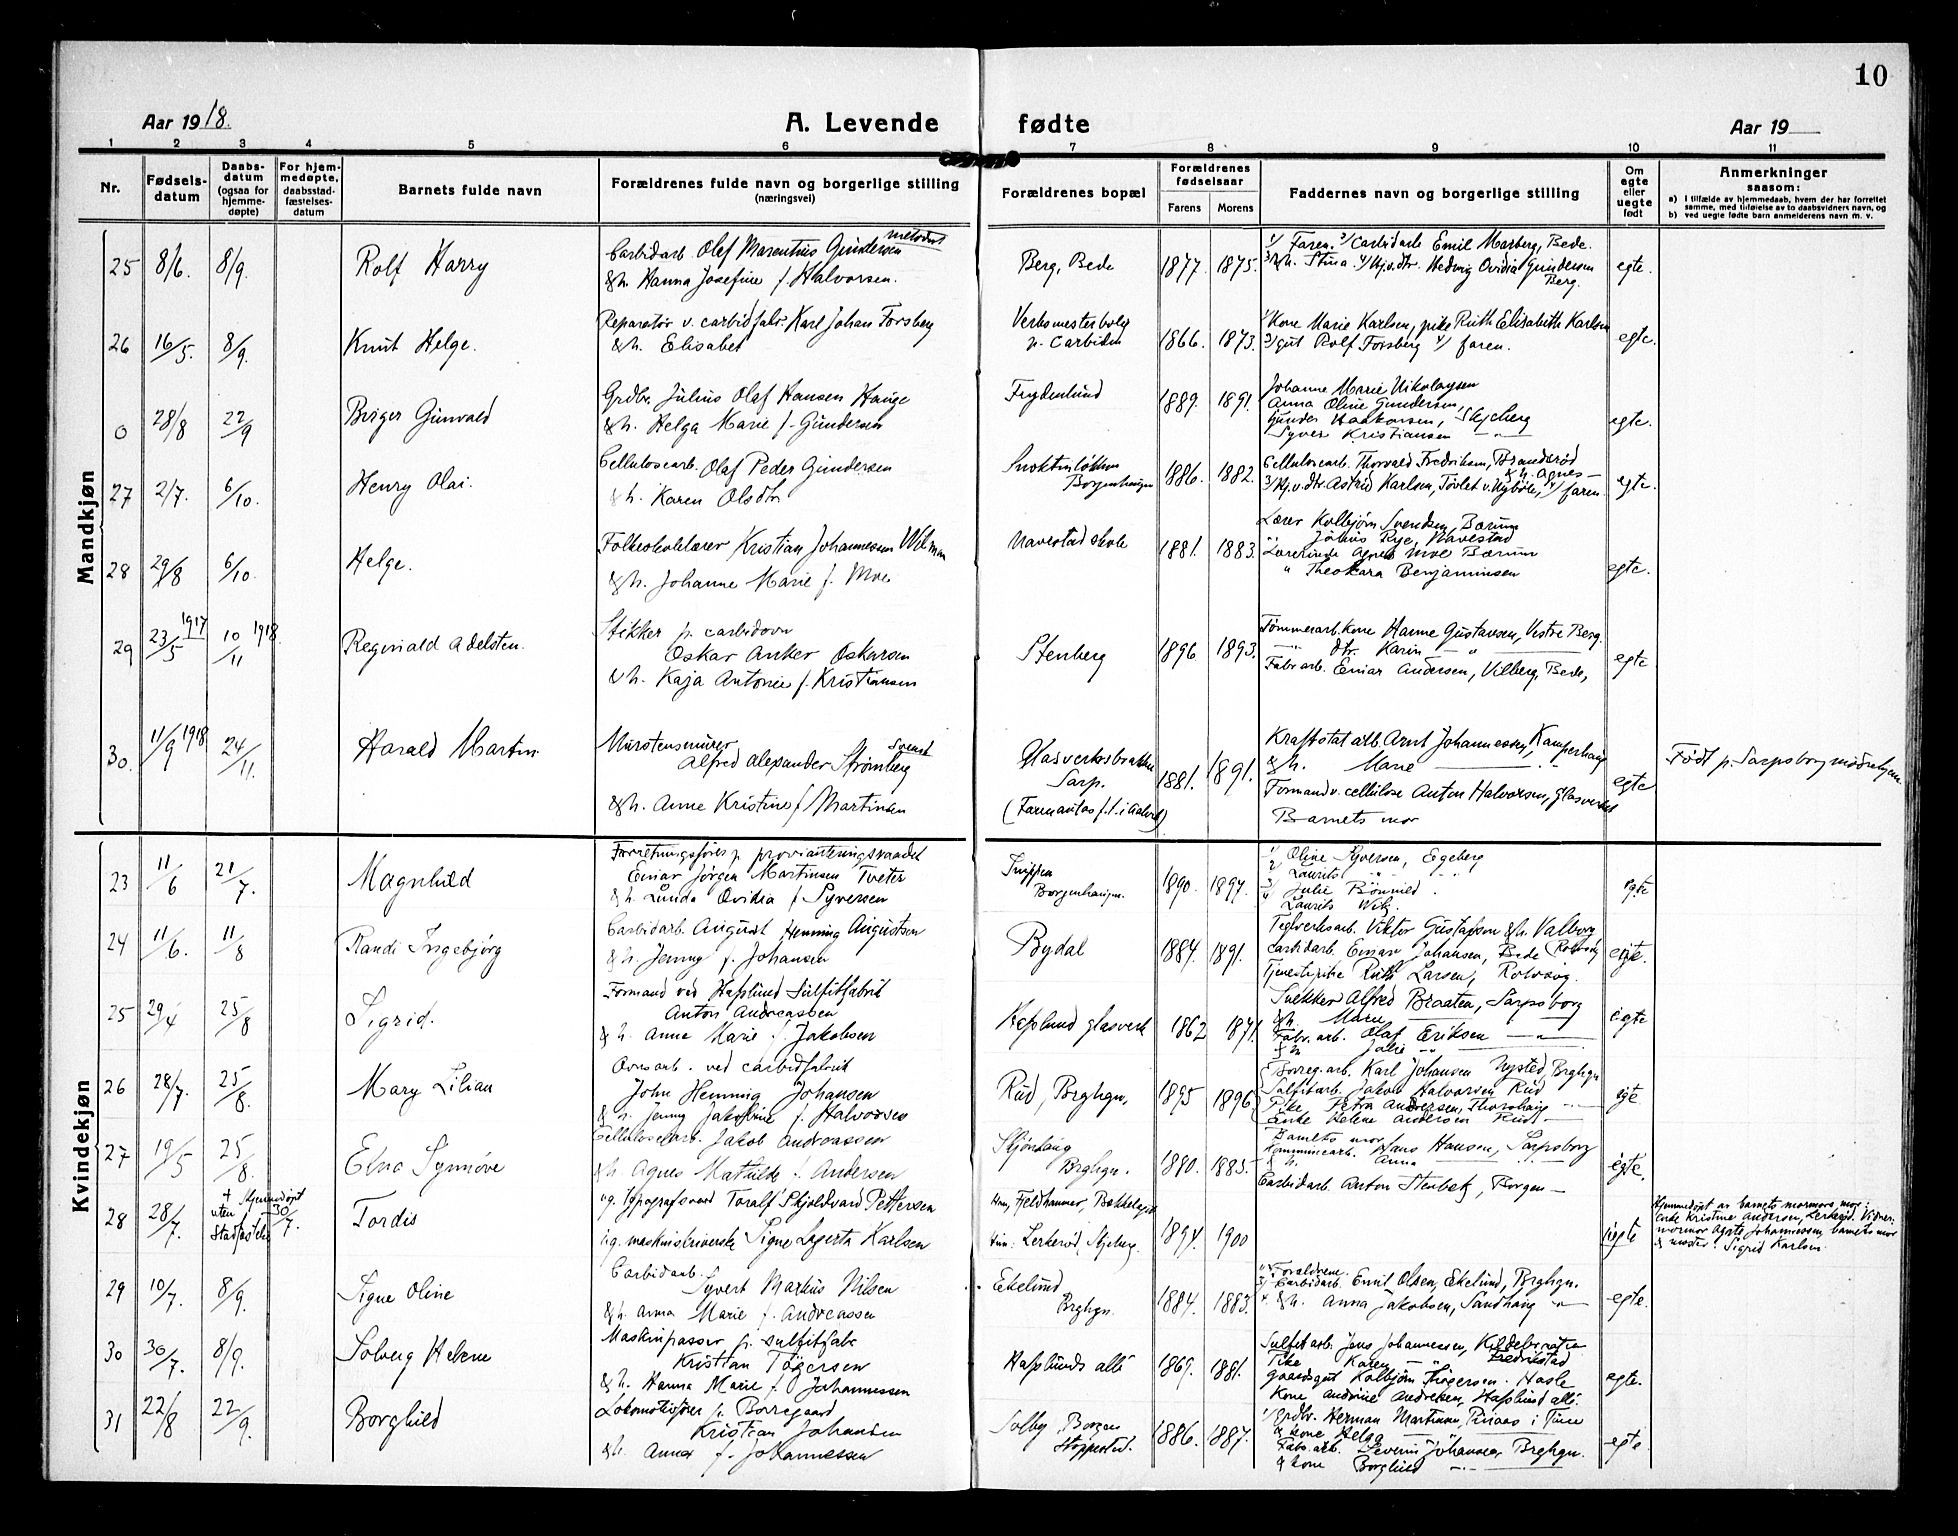 10
Aar 1918.
A. Levende
fødte
Aar 19
1 2 3 4 5 6 7 8 9 10 11
Nr.
Fødselsdatum
Daabsdatum (ogsaa for hjemmedøpte)
For hjemmedøpte, daabsstadfæstelsesdatum
Barnets fulde navn
Forældrenes fulde navn og borgerlige stilling
(næringsvei)
Forældrenes bopæl
Forældrenes fødselsaar
Farens. Morens.
Faddernes navn og borgerlige stilling
Om egte eller uegte født
Anmerkninger
saasom:
a) I tilfælde av hjemmedaab, hvem der har forrettet samme, med tilføielse av to daabsvidners navn, og
b) ved uegte fødte barn anmelderens navn m. v.
Mandkjøn
25 8/6. 8/9. Rolf Harry
Carbidarb Olaf Marentius Gundersen metodist
& h. Hanna Josefine f. Halvorsen.
Berg, Bede 1877. 1875.
1/ Faren. 2/ Carbidarb Emil Marberg, Bede.
3/ & h. Stina 4/ Hj.v.dtr. Hedvig Ovidia Gundersen
Berg.
egte.
26 16/5. 8/9. Knut Helge.
Reparatør v. carbidfabr. Karl Johan Forsberg
& h. Elisabet
Verksmesterbolig
v. Carbiden
1866. 1873.
1/ Kone Marie Karlsen, pike Ruth Elisabeth Karlsen
3/ gut Rolf Forsberg 4/ faren.
egte.
0 28/8 22/9 Birger Gunvald
Grdbr. Julius Olaf Hansen Hauge
& h. Helga Marie f. Gundersen
Frydenlund 1889. 1891.
Johanne Marie Nikolaysen
Anna Oline Gundersen,
Gunder Haakonsen, Skjeberg
Syver Kristiansen — " —
egte.
27 2/7. 6/10. Henry Olai.
Cellulosearb. Olaf Peder Gundersen
& h. Karen Olsdtr.
Borgenhaugen
1886. 1882.
Cellulosearb. Thorvald Fredriksen, Brenderød
& h. Agnes —
3/ Hj.v.dtr Astrid Karlsen, Tovlet v. Nybøle, 4/ faren.
egte.
28 29/8 6/10. Helge.
Folkeskolelærer Kristian Johannessen Wilman
& h. Johanne Marie f. Moe
Navestad skole 1881. 1883.
Lærer Kolbjørn Svendsen, Bærum
" Johnis Rye, Navestad
Lærerinde Agnes Moe Bærum
" Theokara Benjaminsen
egte.
29 23/5 1917 10/11 1918. Reginald Adelsten.
Stikker p. carbidovn
Oskar Anker Oskarsen
& h. Kaja Antonie f. Kristiansen
Stenberg 1896 1893.
Tømmerarb. kone Hanne Gustavsen, Vestre Berg.
— " — dtr. Karin — " —
Fabr arb. Einar Andersen, Vilberg, Bede,
egte
30. 11/9 1918 24/11. Harald Martin
Murstensmurer
Alfred Alexander Strømberg Svensk
& h. Anne Kristine f. Martinsen
Glasverksbrakken
Sarp.
1881. 1891.
Kraftstat. arb. Arnt Johannessen, Kamperhaug
& h. Marie — " —
Formand v. cellulose Anton Halvorsen, Glasverket
Barnets mor
egte
Født p. Sarpsborg mødrehjem
Kvindekjøn
23 11/6 21/7. Magnhild
Forretningsfører p. provianteringsraadet
Einar Jørgen Martinsen Tveter
& h. Lunda Ovidia f. Syversen
Borgenhaugen.
1890. 1897.
1/ Oline Syversen, Egeberg
2 Laurits " "
3/ Julie Bønnild.
4 Laurits Wik.
egte
24 11/6. 11/8 Randi Ingebjørg
Carbidarb. August Henning Augustson
& h. Jenny f. Johansen
Bydal 1884. 1891.
Teglverksarb. Viktor Gustafson & h. Valborg
Carbidarb. Einar Johansen, Bede Rolvsøy
Tjenestepike Ruth Larsen, Rolvsøy.
egte.
25 29/4 25/8 Sigrid.
Formand ved Hafslund Sulfitfabrik
Anton Andreassen
& h. Anne Marie f. Jakobsen
Hafslund glasverk 1862 1871.
Snekker Alfred Braaten, Sarpsborg
& h. Marie
Fabr. arb. Olaf Eriksen — " —
& h. Julie — " —
egte
26 28/7. 25/8. Mary Lilian
Ovnsarb. ved carbidfabrik
John Henning Johansen
& h. Jenny Jakobine f. Halvorsen
Rud, Brghgn, 1895 1896.
Borreg. arb. Karl Johansen Nysted, Brghgn
Sulfitarb. Jakob Halvorsen Rud
Pike Petra Andersen, Thorshaug — " —
Enke Helene Andersen Rud — " —
egte
27 19/5 25/8. Elna Synnøve
Cellulosearb. Jakob Andreassen
& h. Agnes Mathilde f. Andersen
Skjønhaug
Brghgn.
1880. 1885.
Barnets mor
Kommunearb. Hans Hansen, Sarpsborg
& h. Anna — " —
Carbidarb. Anton Stenbek, Borgen —
egte.
28 28/7. + Hjemmedøpt uten Stadfæstelse 30/7. Tordis
ug. Typografsvend Toralf Skjoldvard Pettersen
ug. maskinskriverske Signe Lagerta Karlsen
Han, Fjeldhammer, Bækkelaget
Hun: Lerkerød, Skjeberg.
1894. 1900
uegte
Hjemmedøpt av barnets mormors mor:
Enke Kristine Andersen, Lerkerød. Vidner:
mormor Agnete Johannessen, barnets mor
& moster: Sigrid Karlsen.
29 10/7. 8/9. Signe Oline
Carbidarb.
Syvert Markus Nilsen
& h. Anna Marie f. Andreassen
Ekelund
Brghgn.
1884. 1883.
1/ 2/ Forældrene.
3/ Carbidarb. Emil Olsen, Ekelund, Brghgn.
4. & h. Anna Jakobsen, Sandhaug — " —
egte.
30 30/7. 8/9. Solveig Helene
Maskinpasser p. sulfitfabr
Kristian Tøgersen
& h. Hanna Marie f. Johannessen
Hafslunds allé 1869. 1881.
Sulfitarb. Jens Johannessen,
Pike Karen — " — Fredrikstad
Gaardsgut Kolbjørn Tøgersen. Hasle
Kone Andrine Andresen, Hafslund allé.
egte.
31 22/8 22/9. Borghild
Lokomotivfører p. Borregaard
Kristian Johansen
& h. Anna f. Johannessen
Solby Borgen
Stoppested.
1886. 1887.
1/ Grdbr. Herman Martinsen, Rinaas i Tune
& kone Helga — " —
Fabr. arb. Severin Johansen Brghgn.
& kone Borghild — " —
egte